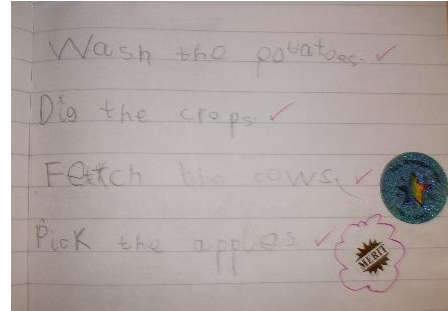 Wash the potatoes.
Dig the crops.
Fetch the cows.
Pick the apples.
MERIT